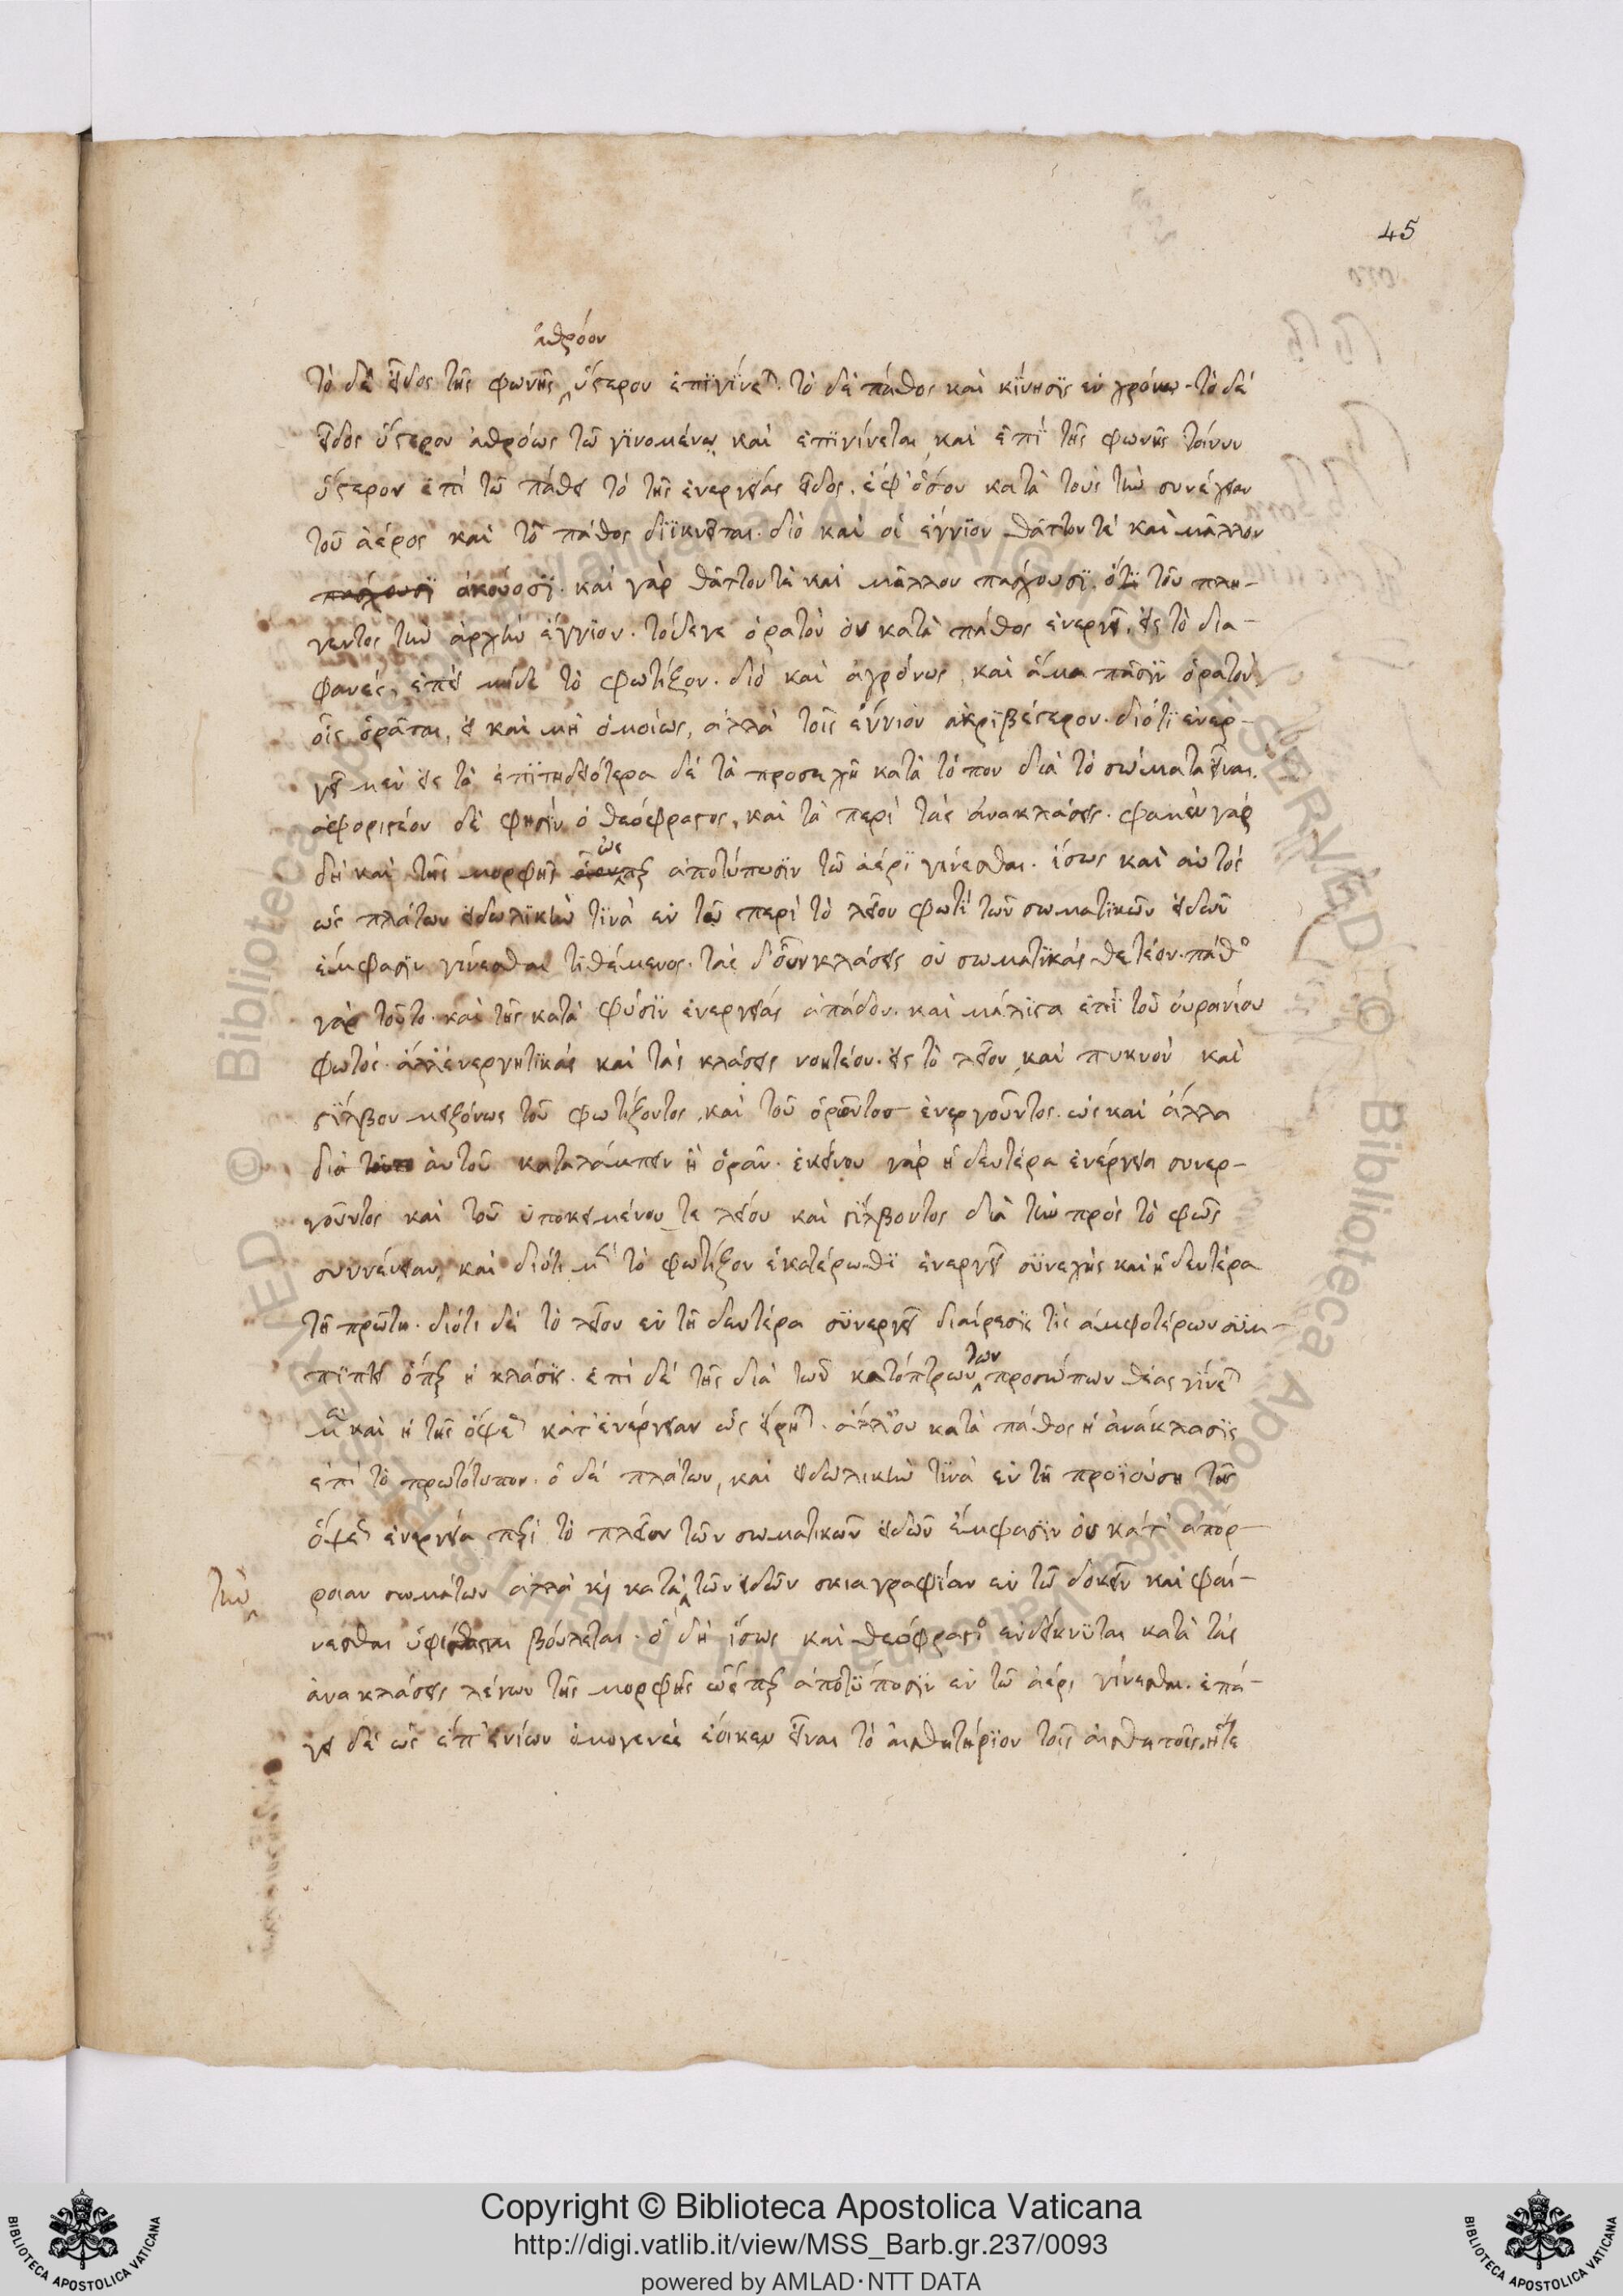 45
ἀθρόον
τὸ δὲ εἶδος τῆς φωνῆς ὕστερον ἐπιγίνεται. τὸ δὲ πάθος καὶ κίνησις ἐν χρόνω. τὸ δὲ
εἶδος ὕστερον ἀθρόως τῶ γινομένω καὶ ἐπιγίνεται, καὶ ἐπὶ τῆς φωνῆς τοίνυν
ὕστερον ἐπὶ τῶ πάθει τὸ τῆς ἐνεργείας εἶδος. ἐφ' ὅσον κατὰ τοὺς τὴν συνέχειαν
τοῦ ἀέρος καὶ τὸ πάθος διικνεῖται. διὸ καὶ οἱ ἔγγιον θᾶττον τὲ καὶ μᾶλλον
πάσχουσι ἀκούοσι. καὶ γὰρ θᾶττον τὲ καὶ μᾶλλον πάσχουσι. ὅτι τοῦ πλη-
γεντος τὴν ἀρχὴν ἔγγιον. τὸ δέ γε ὁρατὸν οὐ κατὰ πάθος ἐνεργεῖ, εἰς τὸ δια-
φανές, ἐπεὶ μήδε τὸ φωτίζον. διὸ καὶ ἀχρόνως, καὶ ἅμα πᾶσιν ὁρατὸν,
οἷς ὁρᾶται, εἰ καὶ μὴ ὁμοίως, ἀλλὰ τοῖς ἔγγιον ἀκριβέστερον. διότι ἐνερ-
γεῖ μὲν εἰς τὰ ἐπιτηδειότερα δὲ τὰ προσεχῆ κατὰ τόπον διὰ τὸ σώματα εἶναι.
ἀφοριστέον δὲ φησὶν ὁ θεόφραστος, καὶ τὰ περὶ τὰς ἀνακλάσεις. φαμὲν γὰρ
δὴ καὶ τῆς μορφῆς ὥσπερ ἀποτύπωσιν τῶ ἀέρι γίνεσθαι. ἴσως καὶ αὐτὸς
ὡς πλάτων εἰδωλικὴν τινὰ ἐν τῶ περὶ τὸ λεῖον φωτὶ τῶν σωματικῶν εἰδῶν
ἔμφασιν γίνεσθαι τιθέμενος. τὰς δ' οὖν κλάσεις οὐ σωματικὰς θετέον. πάθος
γὰρ τοῦτο. καὶ τῆς κατὰ φύσιν ἐνεργείας ἀπάδον. καὶ μάλιστα ἐπὶ τοῦ οὐρανίου
φωτός. ἀλλ' ἐνεργητικὰς καὶ τὰς κλάσεις νοητέον. εἰς τὸ λεῖον, καὶ πυκνὸν καὶ
στίλβον μειζόνως τοῦ φωτίζοντος, καὶ τοῦ ὁρῶντος ἐνεργοῦντος. ὡς καὶ ἄλλα
διὰ αὐτοῦ καταλάμπειν ἢ ὁρᾶν. ἐκείνου γὰρ ἡ δευτέρα ἐνέργεια συνερ-
γοῦντος καὶ τοῦ ὑποκειμένου τε λείου καὶ στίλβοντος διὰ τὴν πρὸς τὸ φῶς
συγγένειαν, καὶ διότι μὲν τὸ φωτίζον ἑκατέρωθι ἐνεργεῖ συνεχὴς καὶ ἡ δευτέρα
τῆ πρώτη. διότι δὲ τὸ λεῖον ἐν τῆ δευτέρα συνεργεῖ διαίρεσις τὶς ἀμφοτέρων συμ-
πίπτει ὅπερ ἡ κλάσις. ἐπὶ δὲ τῆς διὰ τῶν κατόπτρων τῶν προσώπων θέας γίνεται
μὲν καὶ ἡ τῆς ὄψεως κατ' ἐνέργειαν ὡς εἴρηται. ἀλλ' οὐ κατὰ πάθος ἡ ἀνάκλασις
ἐπὶ τὸ πρωτότυπον. ὁ δὲ πλάτων, καὶ εἰδωλικὴν τινὰ ἐν τῆ προϊούση τῆς
ὄψεως ἐνεργεία περὶ τὸ πλεῖον τῶν σωματικῶν εἰδῶν ἔμφασιν οὐ κάτ' ἀπορ-
ροιαν σωμάτων ἀλλὰ καὶ κατὰ τὴν τῶν εἰδῶν σκιαγραφίαν ἐν τῶ δοκεῖν καὶ φαί-
νεσθαι ὑφίστασθαι βούλεται. ὃ δὴ ἴσως καὶ θεόφραστος ἐνδείκνυται κατὰ τὰς
ἀνακλάσεις λέγων τῆς μορφῆς ὥσπερ ἀποτύπωσιν ἐν τῶ ἀέρι γίνεσθαι. ἐπά-
γει δὲ ὡς ἐπ' ἐνίων ὁμογενὲς ἔοικεν εἶναι τὸ αἰσθητήριον τοῖς αἰσθητοῖς. ἥτε
Copyright © Biblioteca Apostolica Vaticana
http://digi.vatlib.it/view/MSS_Barb.gr.237/0093
powered by AMLAD·NTT DATA
BIBLIOTECA APOSTOLICA VATICANA
BIBLIOTECA APOSTOLICA VATICANA